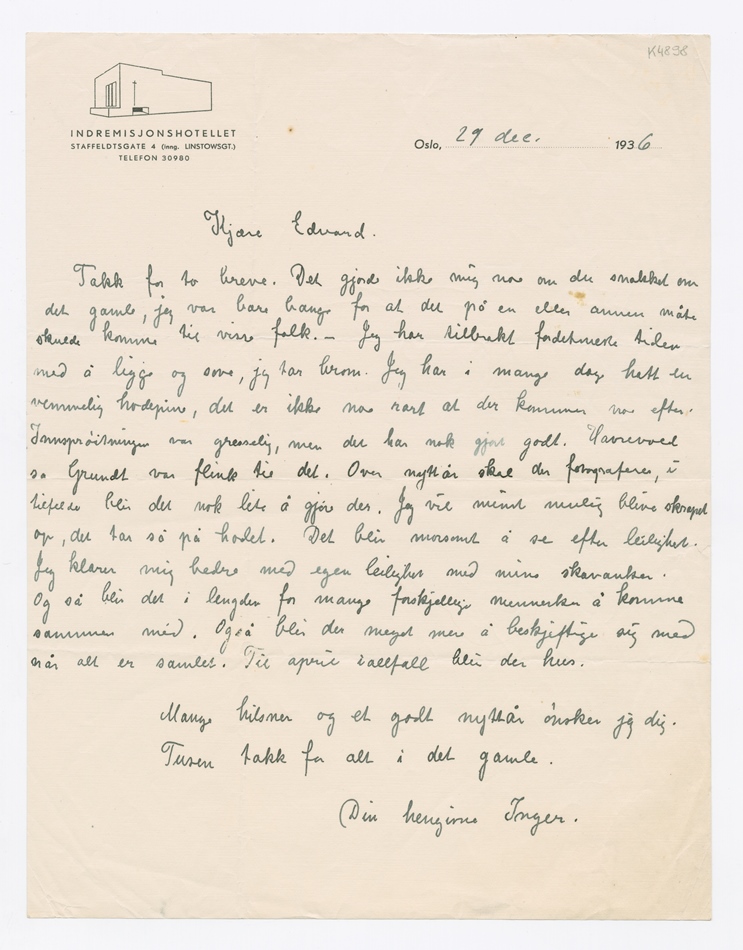 K4898
INDREMISJONSHOTELLET
STAFFELDTSGATE 4 (inng. LINSTOWSGT.)
TELEFON 30980
Oslo, 29 dec. 1936
Kjære Edvard.
Takk for to breve. Det gjorde ikke mig noe om du snakket om
det gamle, jeg var bare bange for at det på en eller annen måte
skulde komme til visse folk. – Jeg har tilbrakt fordetmeste tiden
med å ligge og sove, jeg tar brom. Jeg har i mange dage hatt en
vemmelig hodepine, det er ikke noe rart at der kommer noe efter.
Innsprøitningen var gresselig, men det har nok gjort godt. Havrevoed
sa Grundt var flink til det. Over nyttår skal der fotograferes, i
tilfelde blir det nok lite å gjøre der. Jeg vil minst mulig blive skrapet
op, det tar så på hodet. Det blir morsomt å se efter leilighet.
Jeg klarer mig bedre med egen leilighet med mine skavanker.
Og så blir det i lengden for mange forskjellige mennesker å komme
sammen med. Også blir der meget mere å beskjeftige sig med
når alt er samlet. Til april iallfall blir der hus.
Mange hilsner og et godt nyttår ønsker jeg dig.
Tusen takk for alt i det gamle.
Din hengivne Inger.